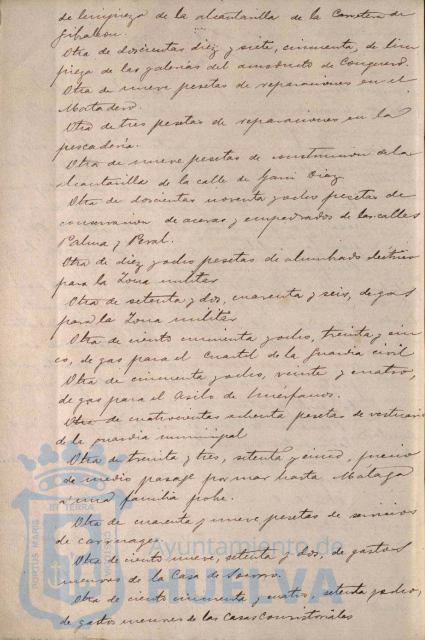 de limpieza de la alcantarilla de la Carretera de
Gibraleon.
Otra de doscientas diez y siete, cincuenta, de lim
pieza de las galerias del acueducto de Conquero.
Otra de nueve pesetas de reparaciones en el
Matadero.
Otra de tres pesetas de reparaciones en la
pescaderia.
Otra de nueve pesetas de construccion de la
alcantarilla de la calle de Garci Diaz
Otra de doscientas noventa y ocho pesetas de
conservacion de aceras y empedrados de las calles
Palma y Peral.
Otra de diez y ocho pesetas de alumbrado electrico
para la Zona militar
Otra de setenta y dos, cuarenta y seis, de gas
para la Zona militar
Otra de ciento cincuenta y ocho, treinta y cin
co, de gas para el Cuartel de la Guardia civil
Otra de cincuenta y ocho, veinte y cuatro,
de gas para el Asilo de huérfanos.
Otra de cuatrocientas ochenta pesetas de vestuario
de la guardia municipal
Otra de treinta y tres, setenta y cinco, precio
de medio pasaje por mar hasta Malaga
a una familia pobre.
Otra de cuarenta y nueve pesetas de servicios
de carruages
Otra de ciento nueve, setenta y dos, de gastos
menores de la Casa de Socorro.
Otra de ciento cincuenta y cuatro, setenta y ocho,
de gastos menores de las Casas Consistoriales
PORTUS MARIS
ET TERRÆ
CUSTODIA
Ayuntamiento de
HUELVA